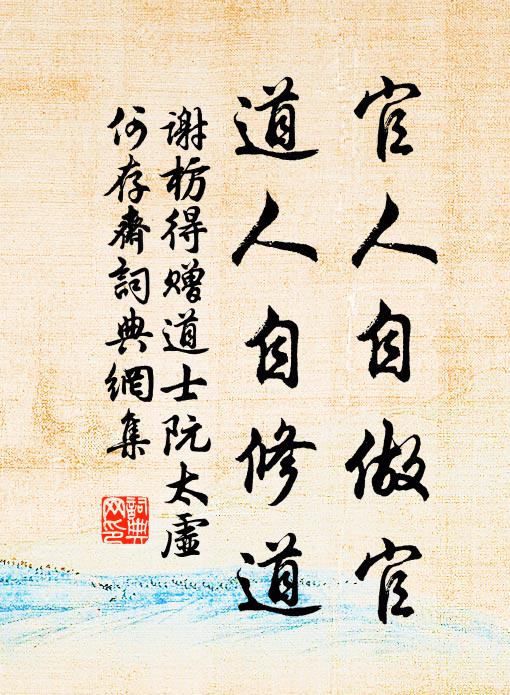 官人自做官
道人自修道
謝枋得赠道士阮太虛
何存齋詞典網集
詞典网印